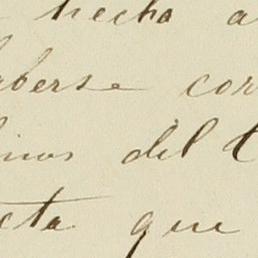 hecho a
aberse cor
inos del C
cta que